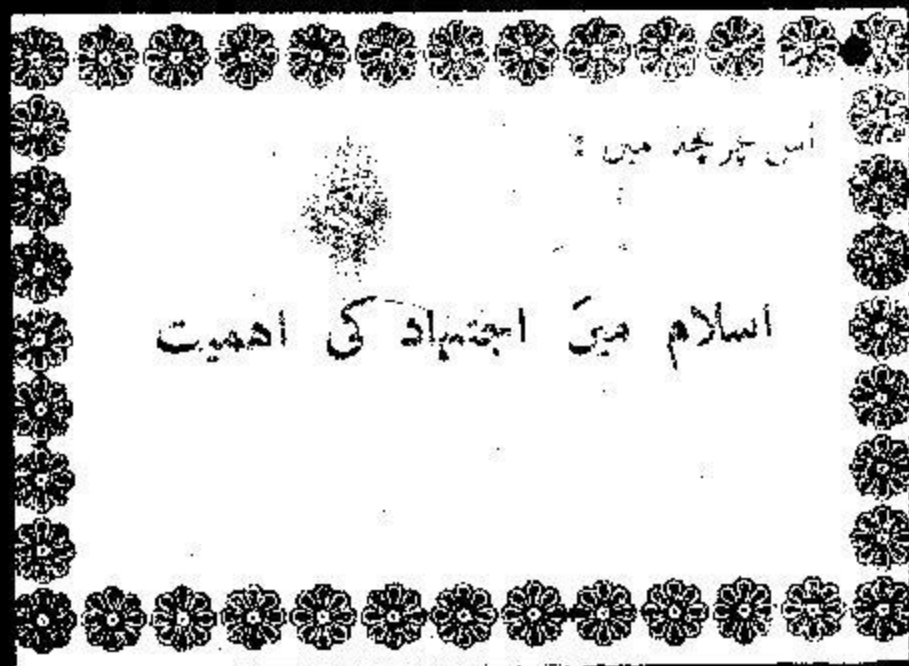 اس پرچہ میں :
اسلام میں اجتہاد کی اهمیت